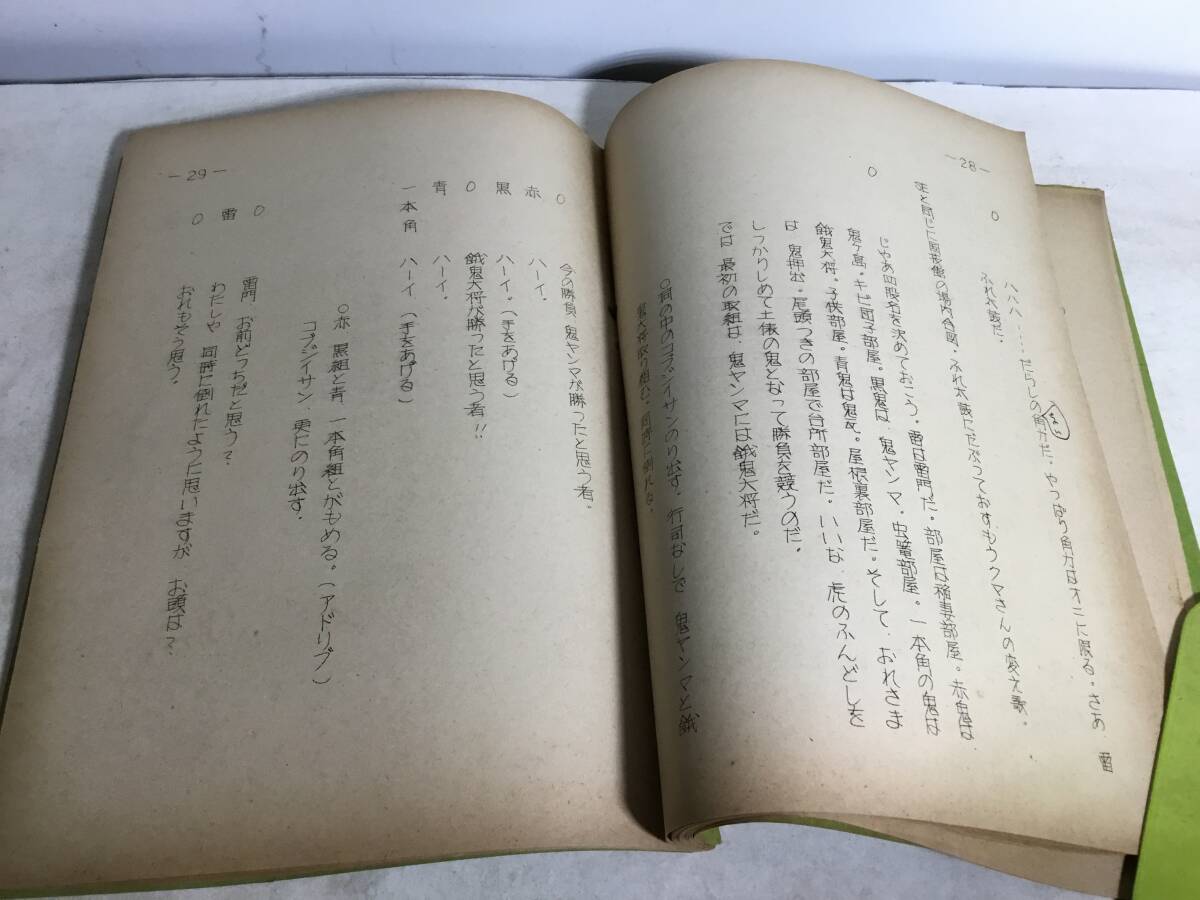 —28—
○ ハハハ……だらしの(ない)角力だ。やっぱり角力はオニに限る。さあ 雷
ふれ太鼓だ。
ふれ太鼓にだぶっておすもうクマさんの変え歌。
○ じゃあ四股名を決めておこう。雷は雷門だ。部屋は稲妻部屋。赤鬼は
鬼ヶ島。キビ団子部屋。黒鬼は 鬼ヤンマ。虫篭部屋。一本角の鬼は
餓鬼大将。子供部屋。青鬼は鬼瓦。屋根裏部屋だ。そして、おれさま
は 鬼押出。尾頭つきの部屋で台所部屋だ。いいな、虎のふんどしを
しっかりしめて土俵の鬼となって勝負を競うのだ。
では 最初の取組は、鬼ヤンマには餓鬼大将だ。
○祠の中のコブジイサンのり出す。行司なしで 鬼ヤンマと餓
鬼大将取り組む。同時に倒れる。
○ 今の勝負、鬼ヤンマが勝ったと思う者。
赤 ハーイ。
黒 ハーイ。(手をあげる)
○ 餓鬼大将が勝ったと思う者!!
青 ハーイ。
一本角 ハーイ(手をあげる)
○赤 黒組と青 一本角組とがもめる。(アドリブ)
コブジイサン、更にのり出す。
○ 雷門 お前どっちだと思う?
雷 わたしゃ 同時に倒れたように思いますが お頭は?
○ おれもそう思う。
—29—